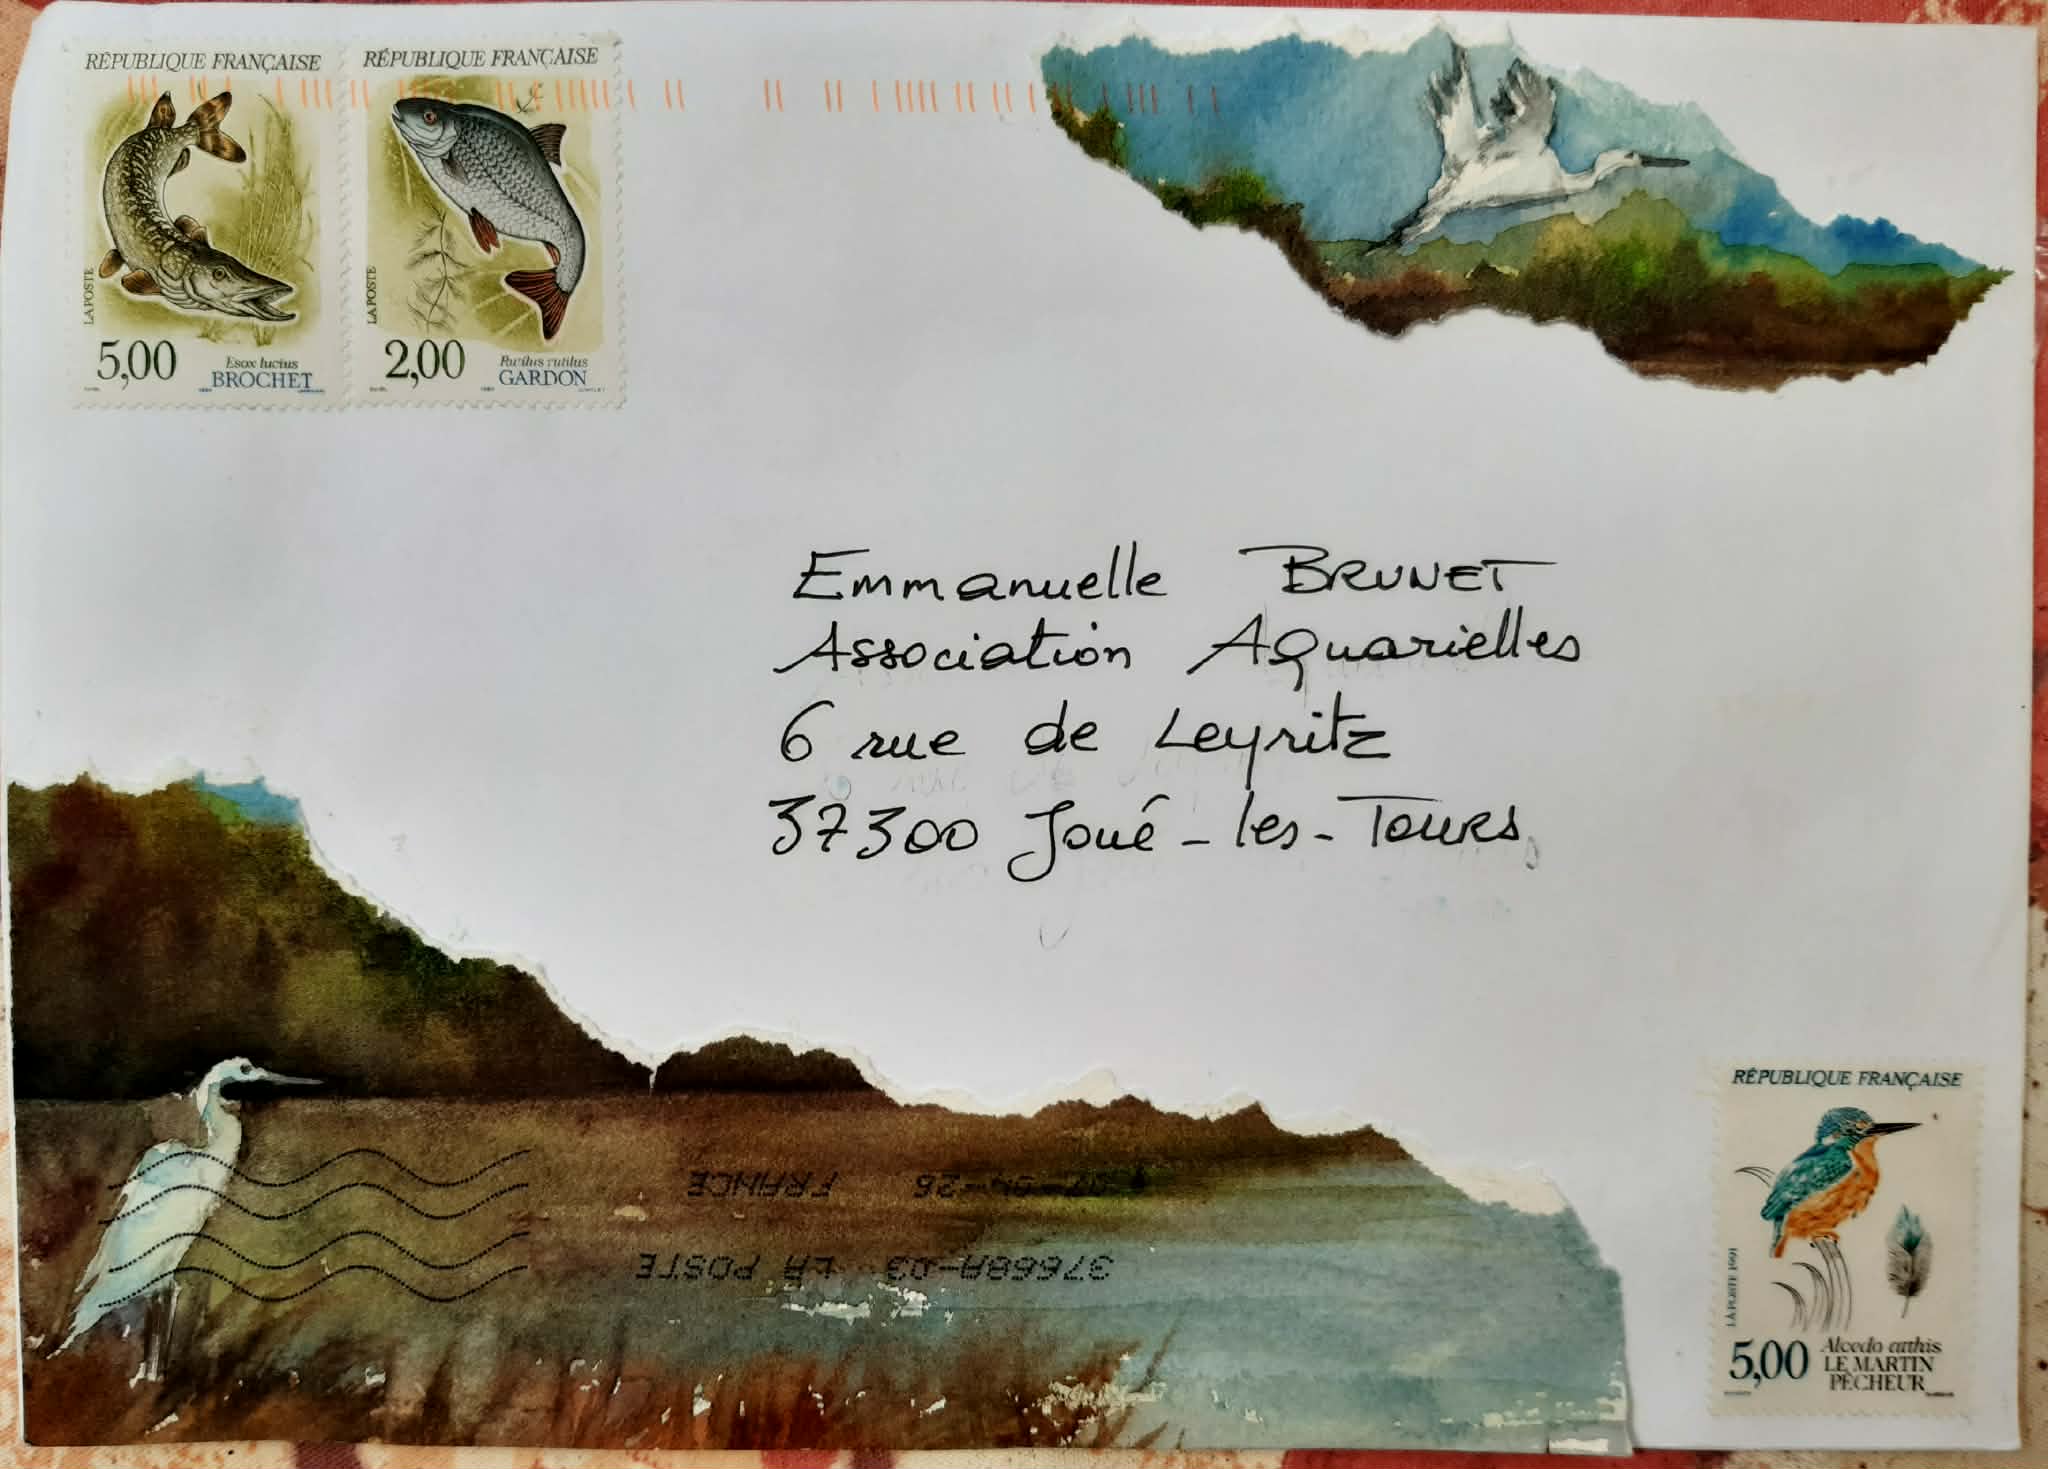 RÉPUBLIQUE FRANÇAISE
LA POSTE
5,00
Esox lucius
BROCHET
RÉPUBLIQUE FRANÇAISE
LA POSTE
2,00
Rutilus rutilus
GARDON
Emmanuelle BRUNET
Association Aquarielles
6 rue de Leyritz
37300 Joué-les-Tours
37668A-03 LA POSTE
07-04-26 FRANCE
RÉPUBLIQUE FRANÇAISE
LA POSTE 1991
5,00
Alcedo atthis
LE MARTIN
PÊCHEUR